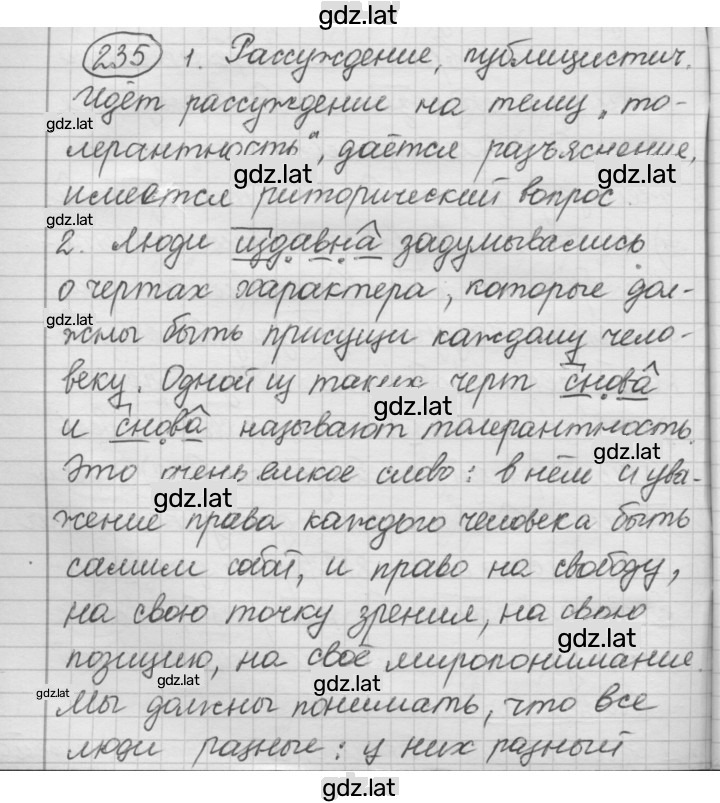 gdz.lat
235 1. Рассуждение, публицистич.
Идёт рассуждение на тему „то-
gdz.lat
лерантность", даётся разъяснение,
gdz.lat gdz.lat
имеется риторический вопрос.
gdz.lat
2. Люди издавна задумывались
о чертах характера, которые дол-
gdz.lat
жны быть присущи каждому чело-
веку. Одной из таких черт снова
gdz.lat
и снова называют толерантность.
gdz.lat
Это очень ёмкое слово: в нём и ува-
gdz.lat
жение права каждого человека быть
самим собой, и право на свободу,
на свою точку зрения, на свою
gdz.lat
позицию, на своё миропонимание.
gdz.lat gdz.lat
Мы должны понимать, что все
люди разные: у них разный
gdz.lat